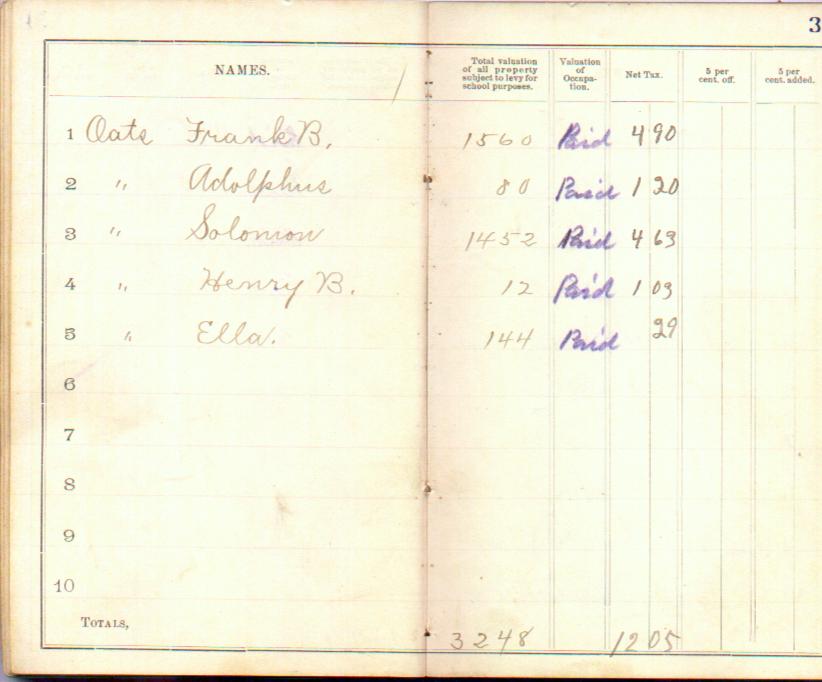 3
NAMES. Total valuation of all property subject to levy for school purposes. Valuation of Occupa-tion. Net Tax. 5 per cent. off. 5 per cent. added.
1 Oats Frank B. 1560 Paid 4 90
2 " Adolphus 80 Paid 1 20
3 " Solomon 1452 Paid 4 63
4 " Henry B. 12 Paid 1 03
5 " Ella. 144 Paid 29
6
7
8
9
10
TOTALS, 3248 12 05